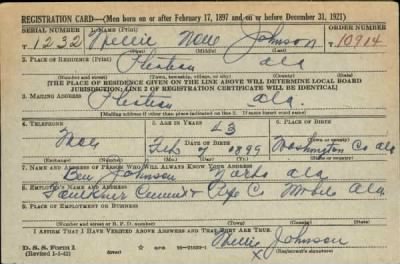 REGISTRATION CARD—(Men born on or after February 17, 1897 and on or before December 31, 1921)
SERIAL NUMBER 1. NAME (Print) ORDER NUMBER
T 1232 Johnson T 10914
(First) (Middle) (Last)
2. PLACE OF RESIDENCE (Print)
Ala
(Number and street) (Town, township, village, or city) (County) (State)
[THE PLACE OF RESIDENCE GIVEN ON THE LINE ABOVE WILL DETERMINE LOCAL BOARD
JURISDICTION; LINE 2 OF REGISTRATION CERTIFICATE WILL BE IDENTICAL]
3. MAILING ADDRESS
Ala.
[Mailing address if other than place indicated on line 2. If same insert word same]
4. TELEPHONE 5. AGE IN YEARS 6. PLACE OF BIRTH
43
DATE OF BIRTH Washington Co Ala
Feb 7 1899
(Exchange) (Number) (Mo.) (Day) (Yr.) (Town or county) (State or country)
7. NAME AND ADDRESS OF PERSON WHO WILL ALWAYS KNOW YOUR ADDRESS
Ben Johnson Ala
8. EMPLOYER'S NAME AND ADDRESS
Faulkner Cement & Pipe Co Mobile Ala
9. PLACE OF EMPLOYMENT OR BUSINESS
(Number and street or R. F. D. number) (Town) (County) (State)
I AFFIRM THAT I HAVE VERIFIED ABOVE ANSWERS AND THAT THEY ARE TRUE.
D. S. S. Form 1
(Revised 1-5-42) (over) Johnson
X (Registrant's signature)